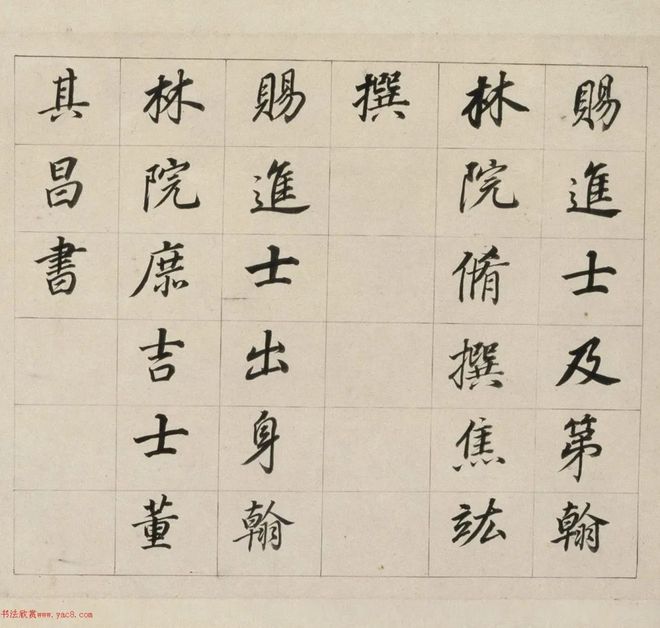 賜進士及第翰
林院脩撰焦竑
撰
賜進士出身翰
林院庶吉士董
其昌書
书法欣赏www.yac8.com